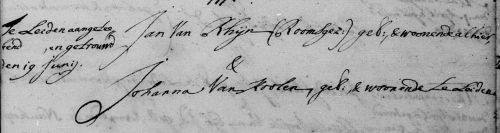 Te Leiden aangete
kend, en getrouwd
den 19 Junij.
Jan Van Rhijn (Roomsgez:) geb: & woonende alhier
&
Johanna Van Koolen, geb: & woonende te Leiden